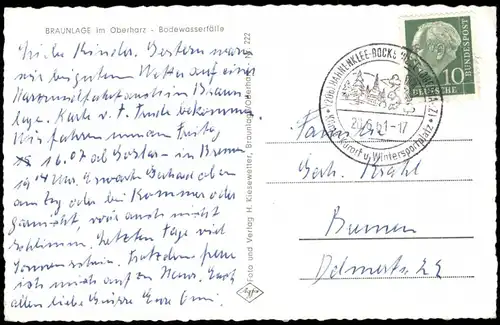 BRAUNLAGE im Oberharz - Bodewasserfälle
Liebe Kinder. Gestern waren
wir bei gutem Wetter auf einer
Harzrundfahrt auch in Braun
lage. Karte v. t. Trude bekommen.
Wir fahren nun Freitag
16.07 ab Goslar - in Bremen
19 Uhr. Erwarte Gerhard oben
am Zug oder bei
gar nicht, wär auch nicht
schlimm. Letzten Tage viel
Sonnenschein. Trotzdem freue
ich mich auf zu Haus. Euch
allen liebe Grüsse Eure Omi.
Foto und Verlag H. Kiesewetter, Braunlage/Oberharz - Nr. 222
HAHNENKLEE-BOCKSWIESE
Kurort u. Wintersportplatz
-17
DEUTSCHE BUNDESPOST
10
Familie
Gerh.
Bremen
Delmestr. 22